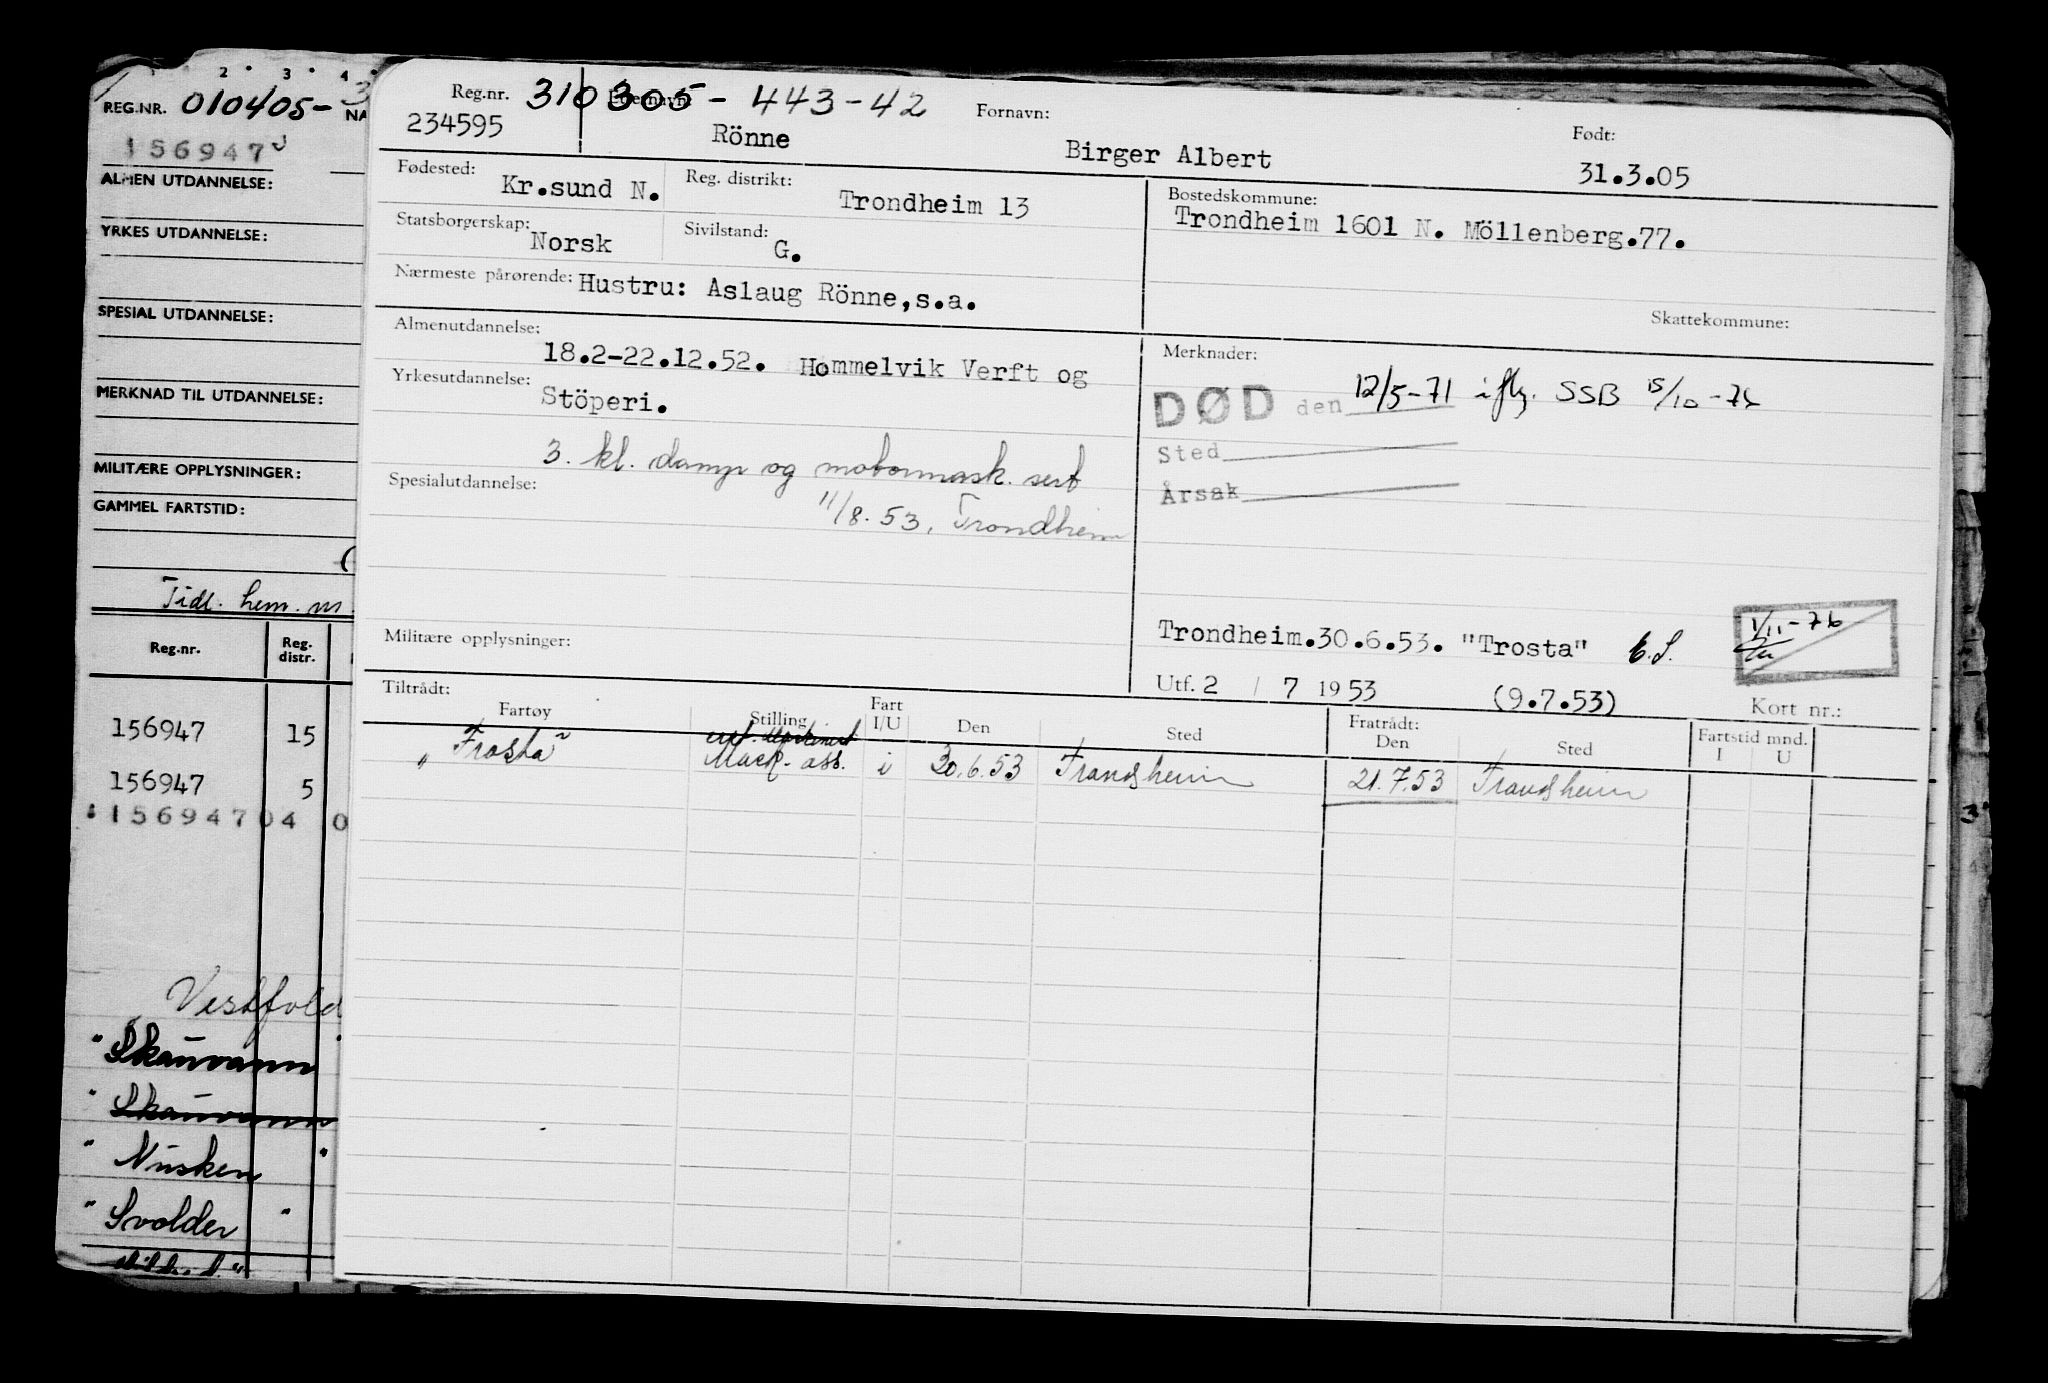 2 3 4
REG.NR. 010405-
156947
ALMEN UTDANNELSE:
YRKES UTDANNELSE:
SPESIAL UTDANNELSE:
MERKNAD TIL UTDANNELSE:
MILITÆRE OPPLYSNINGER:
GAMMEL FARTSTID:
Tidl. hem. nr.
Reg.nr. Reg. distr.
156947 15
156947 5
15694704 0
Vestfold
"Skauvann"
"Skauvann
"Nusken"
"Svolder"
Reg.nr. 310305-443-42 Etternavn: Fornavn: Født:
234595 Rönne Birger Albert 31.3.05
Fødested: Kr.sund N. Reg. distrikt: Trondheim 13 Bostedskommune:
Trondheim 1601 N. Möllenberg.77.
Statsborgerskap: Norsk Sivilstand: G.
Nærmeste pårørende: Hustru: Aslaug Rönne,s.a.
Skattekommune:
Almenutdannelse:
18.2-22.12.52. Hommelvik Verft og
Yrkesutdannelse: Stöperi.
3. kl. damp og motormask. sert
Spesialutdannelse: 11/8.53, Trondheim
Militære opplysninger:
Merknader:
DØD den 12/5-71 iflg. SSB 15/10-76
Sted
Årsak
Trondheim.30.6.53. "Trosta" E.S.
1/11-76
Utf. 2 / 7 1953 (9.7.53) Kort nr.:
Tiltrådt: Fratrådt:
Fartøy Stilling Fart I/U Den Sted Den Sted Fartstid mnd. I U
"Trosta" Mask. ass. i 30.6.53 Trondheim 21.7.53 Trondheim
3